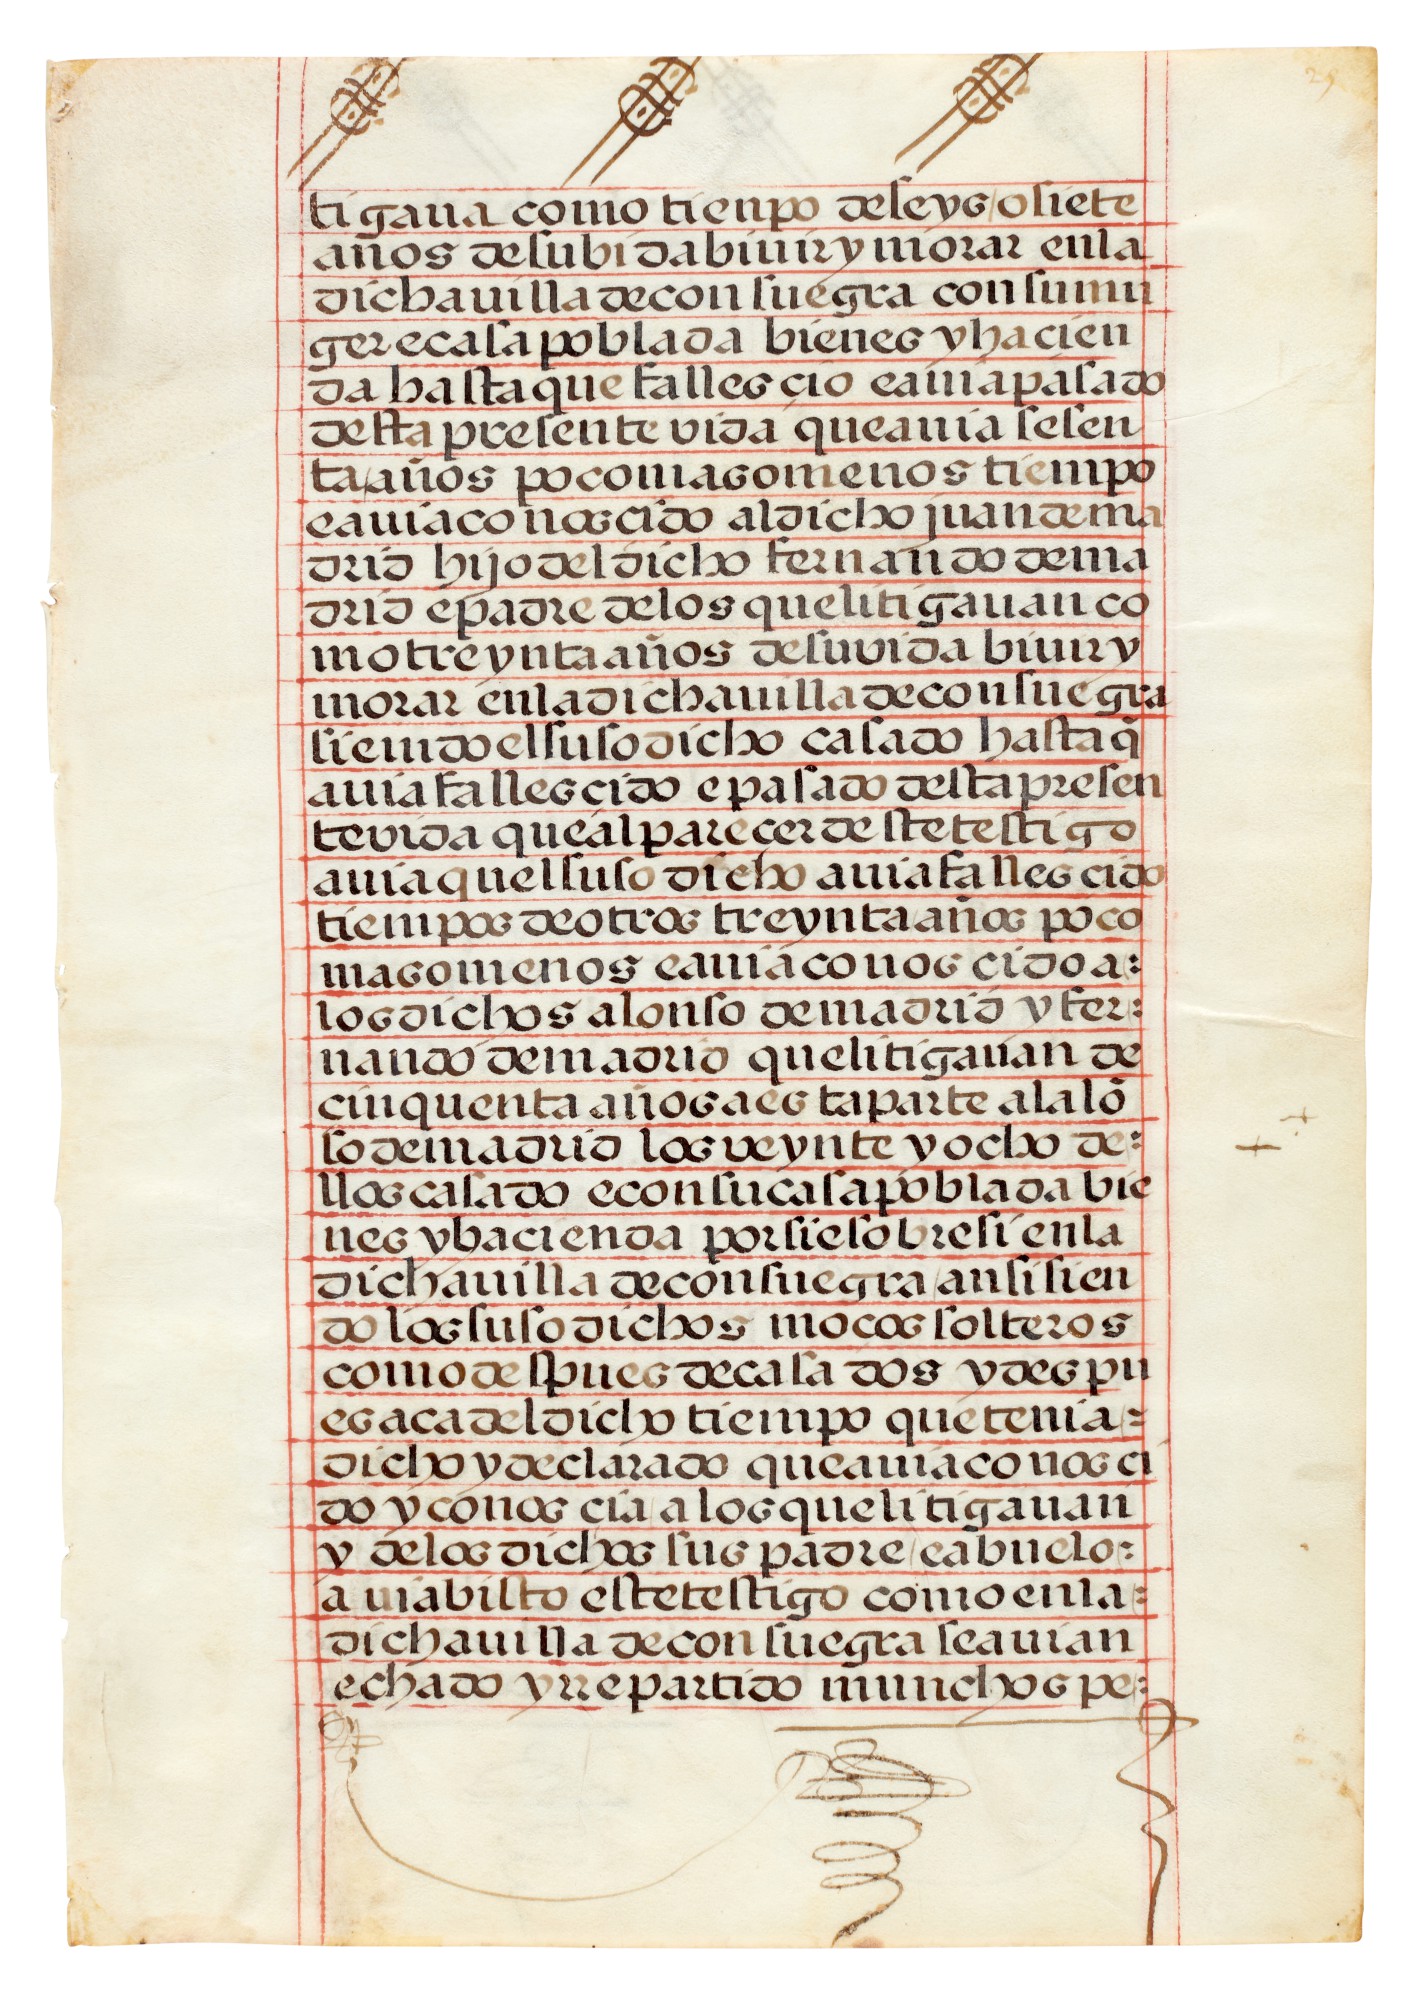 25
tigaua como tienpo de seys / o siete
años de su bida biuir y morar en la
dicha uilla de consuegra con su mu
ger e casa poblada bienes y hacien
da hasta que fallescio e auia pasado
desta presente vida que auia sesen
ta / años poco mas o menos tiempo
e auia conoscido al dicho juan de ma
drid hijo del dicho fernando de ma
drid e padre de los que litigauan co
mo treynta años de su vida biuir y
morar en la dicha uilla de consuegra
siendo el suso dicho casado hasta q̃
auia fallescido e pasado desta presen
te vida que al parecer deste testigo
auia quel suso dicho auia fallescido
tiempos de otros treynta años poco
mas o menos e auia conoscido a:
los dichos alonso de madrid y fer:
nando de madrid que litigauan de
cinquenta años a esta parte al alõ
so de madrid los veynte y ocho de:
llos casado e con su casa poblada bie
nes y hacienda por si e sobre si en la
dicha uilla de consuegra / ansi sien
do los suso dichos mocos solteros
como despues de casados y despu
es aca del dicho tiempo que tenia:
dicho y declarado que auia conosci
do y conoscia / a los que litigauan
y de los dichos sus padre / e abuelo:
auia bisto este testigo como en la:
dicha uilla de consuegra se auian
echado y rrepartido munchos pe: